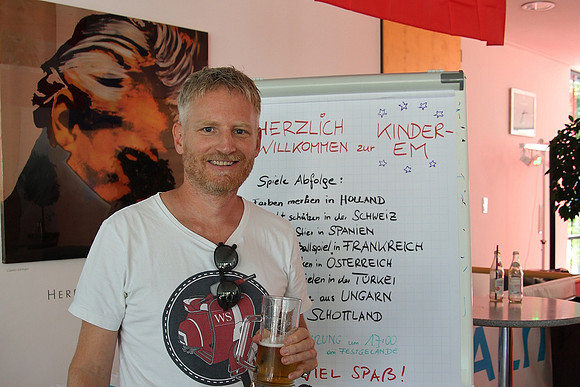 HERZLICH
WILLKOMMEN zur
KINDER-
EM
Spiele Abfolge:
Farben merken in HOLLAND
schätzen in der SCHWEIZ
Stier in SPANIEN
Ballspiel in FRANKREICH
in ÖSTERREICH
in der TÜRKEI
aus UNGARN
SCHOTTLAND
um 17:00
am FESTGELÄNDE
VIEL SPAß!
WS
HER